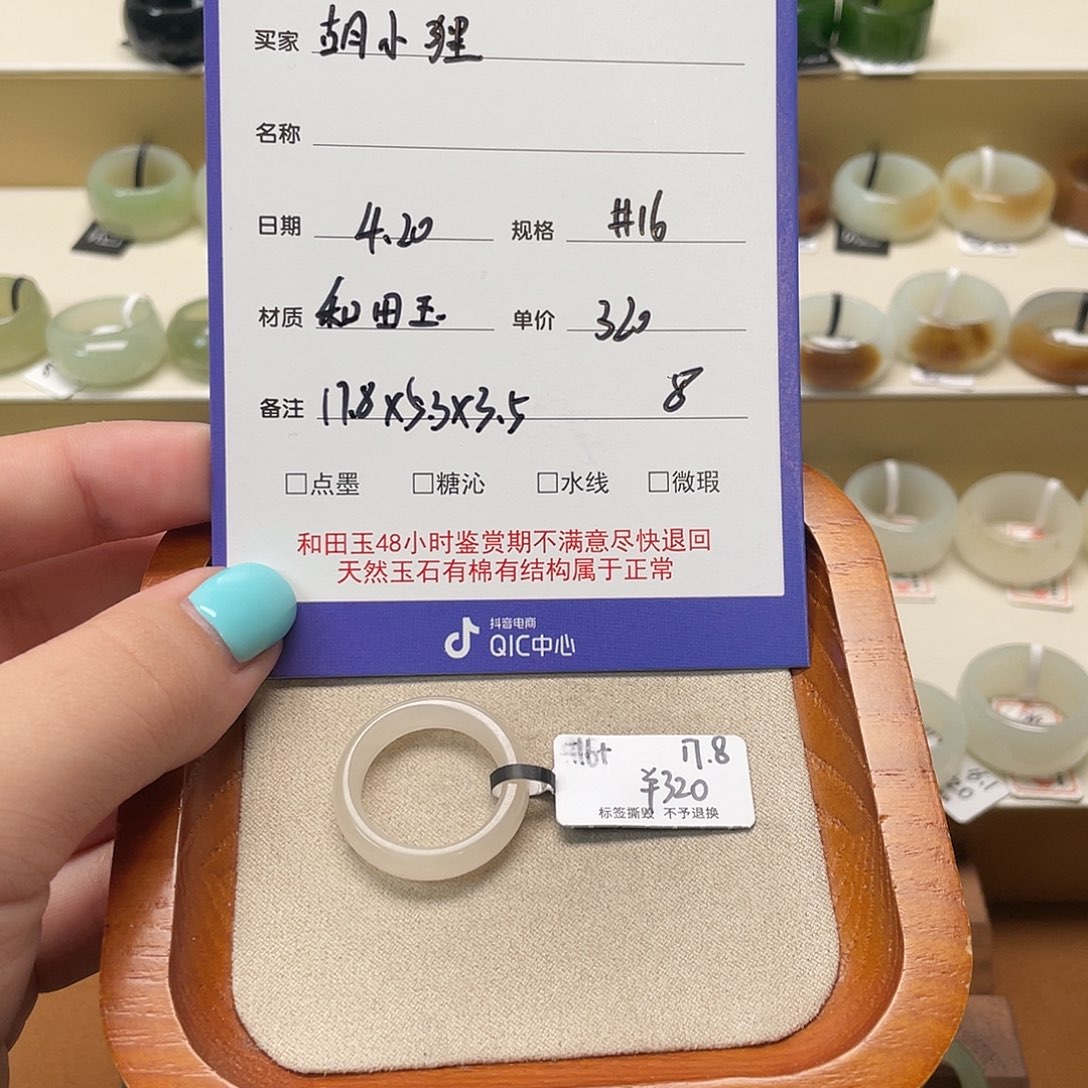 买家 胡小狸
名称
日期 4.20 规格 #16
材质 和田玉 单价 320
备注 17.8×5.3×3.5 8
□点墨 □糖沁 □水线 □微瑕
和田玉48小时鉴赏期不满意尽快退回
天然玉石有棉有结构属于正常
抖音电商
QIC中心
#16+ 17.8
¥320
标签撕毁 不予退换